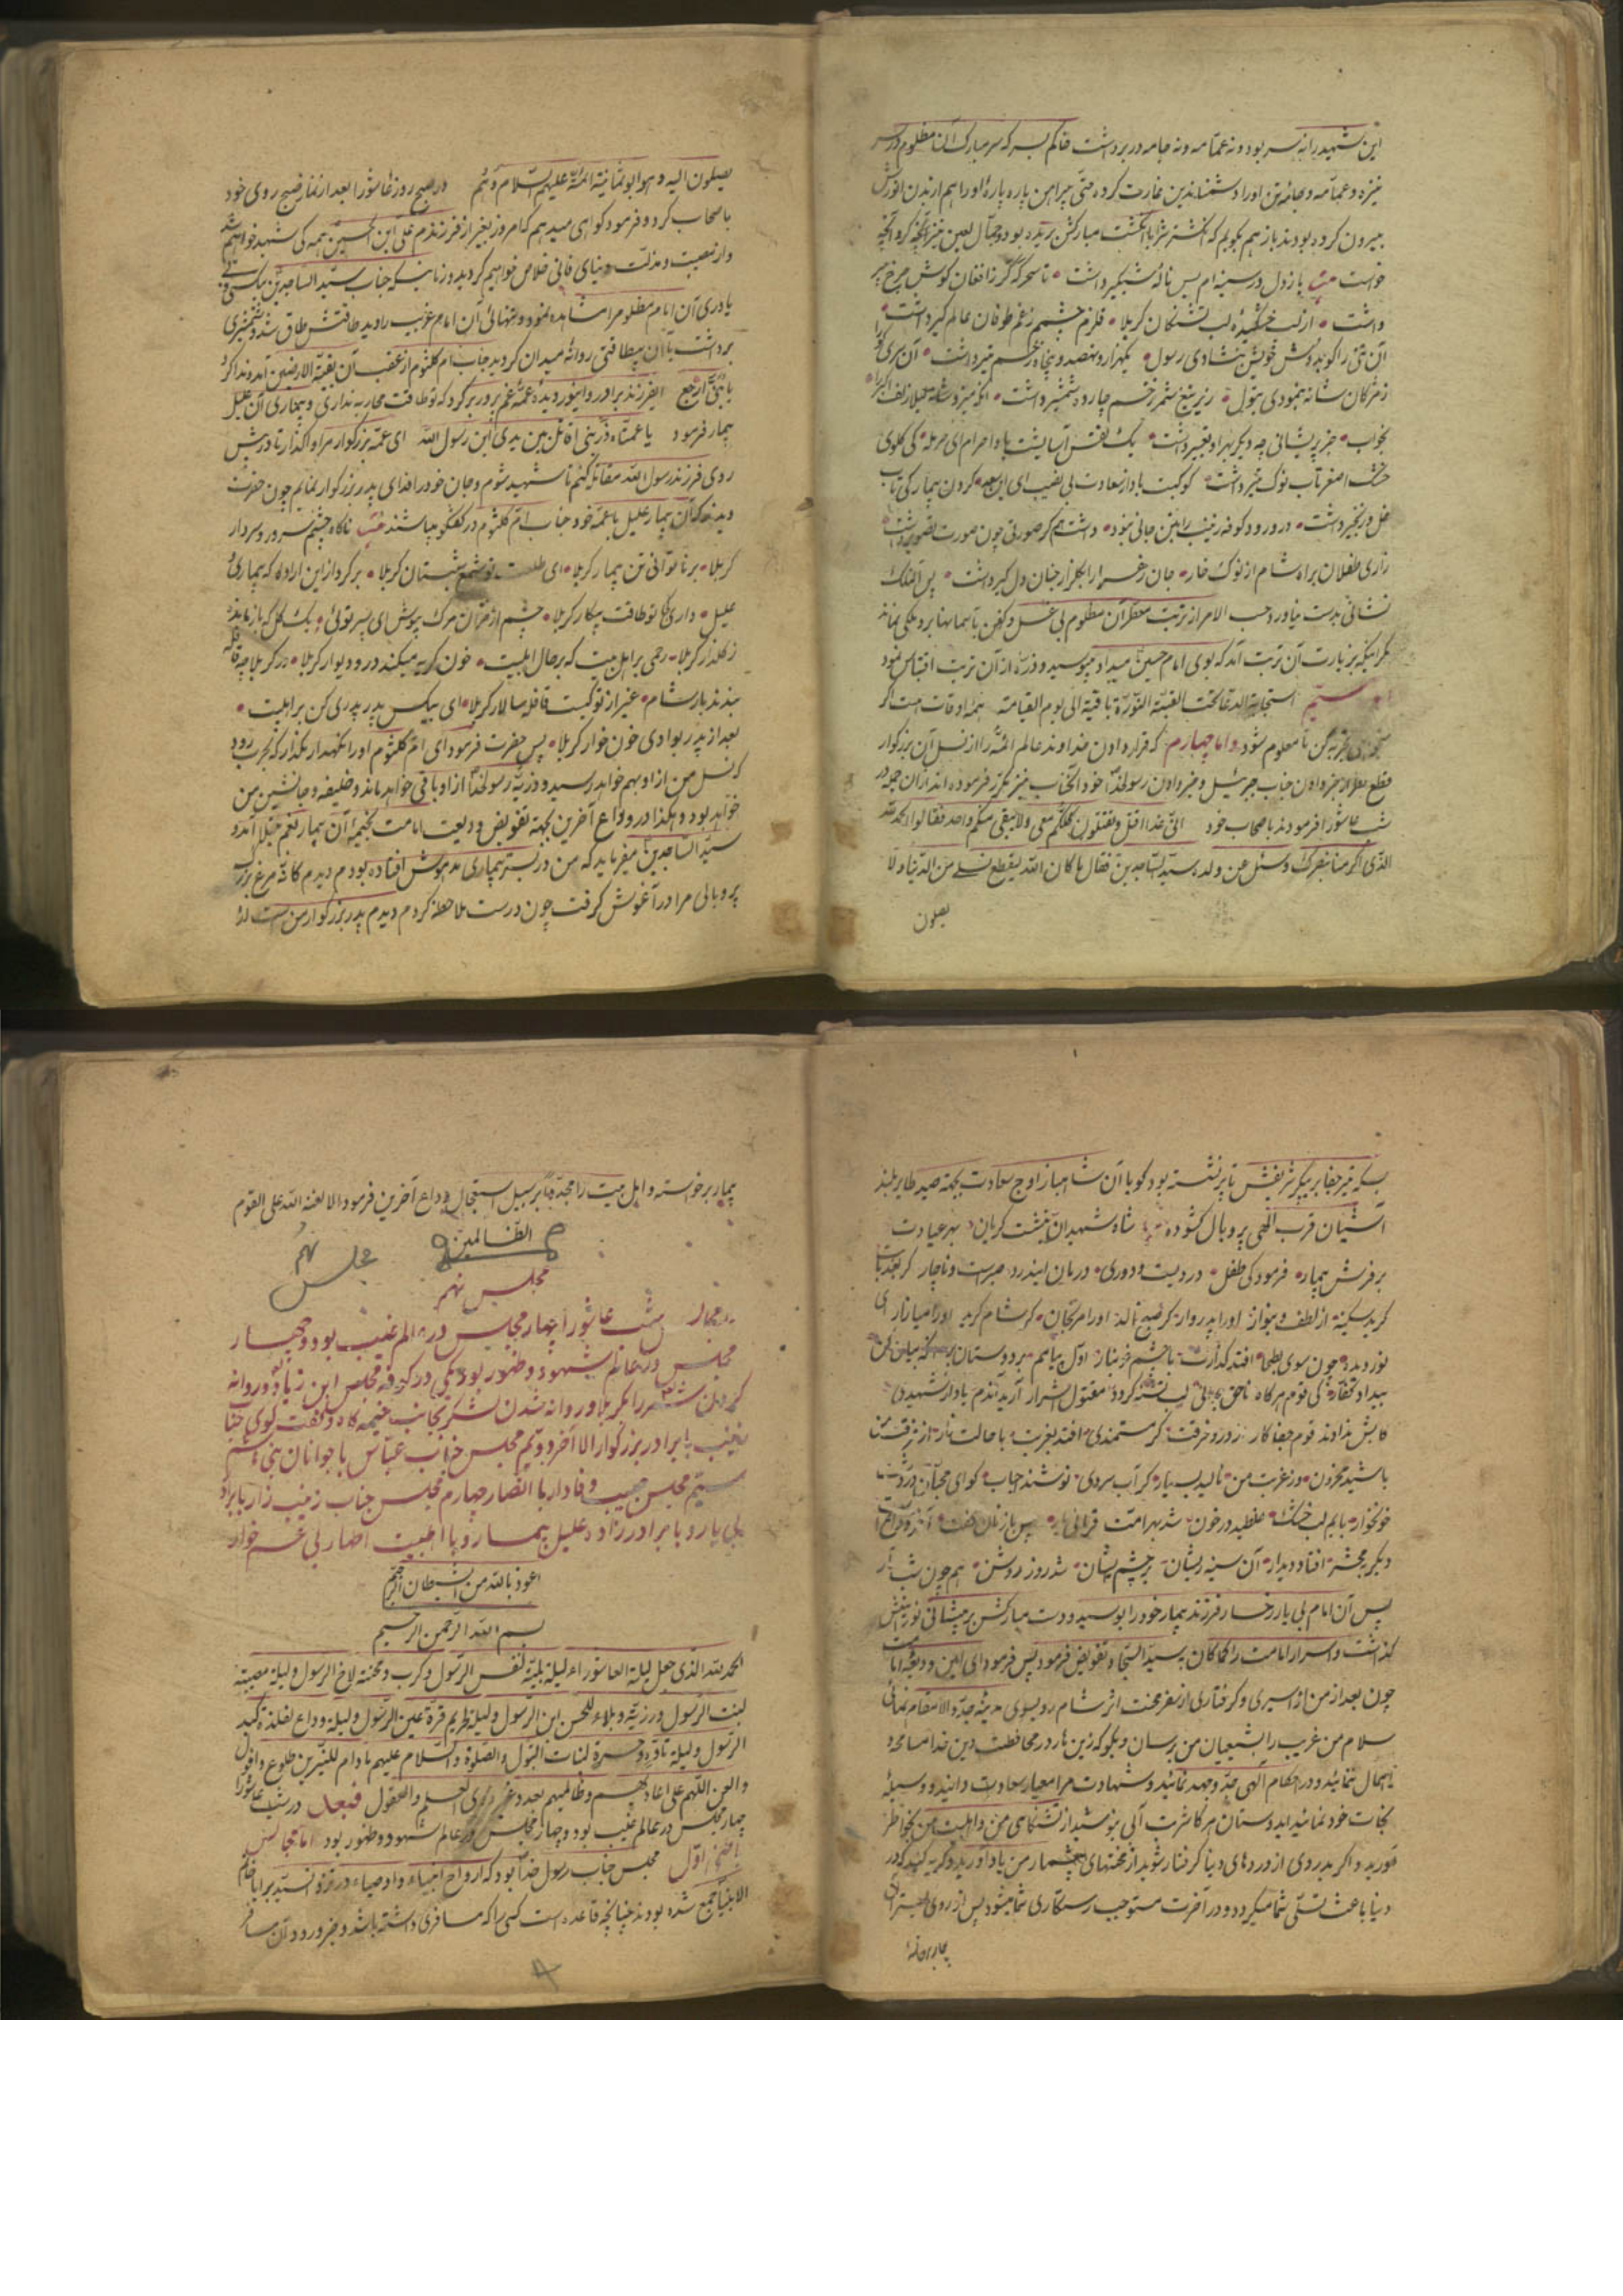 این شهید را نه سر بود و نه عمّامه و نه جامه در بر داشت خاکم بسر که سر مبارک آن مظلوم در سر
نیزه و عمّامه و جامهٔ تن او را دشمنان دین غارت کرده حتّی پیراهن پاره پارهٔ او را هم از بدن انورش
بیرون کرده بودند باز هم بگویم که انگشتر شرا با انگشت مبارکش بریده بود و جمّال لعین نیز آنچه کرد آنچه
خواست باز دل در سینه ام بس نالهٔ شبگیر داشت تا سحرگه گرز افغان گوش چرخ پیر
داشت از لب خشکیدهٔ لب تشنگان کربلا قلزم چشمم زغم طوفان عالم گیر داشت
آن تنی را کو بدوش خویش بنشادی رسول یکهزار و نهصد و پنجاه زخم تیر داشت آن سری را
زمژگان شانه بنمودی بتول زیر تیغ شمر زخم چارده شمشیر داشت
بخواب جز پریشانی چه دیگر بهر او تعبیر داشت یک نفس آسایشت بادا حرام ای حرمله کی گلوی
خشک اصغر تاب نوک تیر داشت کوکبت باد از سعادت بی نصیب ای ابن سعد گردن بیمار کی تاب
غل و زنجیر داشت در ورود کوفه زینب را بتن جانی نبود داشت هم گر صورتی چون صورت تصویر داشت
زاری طفلان براه شام از نوک خار جان زهرا را بگلزار جنان دل گیر داشت پس آن ملک
نشانی بدست بیاورد حسب الامر از تربت معطر آن مظلوم بی غسل و کفن بآسمانها برد ملکی نماند
مگر اینکه بزیارت آن تربت آمد که بوی امام حسین میداد میبوسید و ذرّه از آن تربت اقتباس نمود
امّا سیّم استجابة الدعا تحت القبّة المنوّرة باقیة الی یوم القیامة همه اوقات است اگر
تجربه کن تا معلوم شود و اما چهارم که قرار دادن خداوند عالم ائمّه را از نسل آن بزرگوار
قطع نظر از خبر دادن جناب جبرئیل و خبر دادن رسولخدا خود آنجناب نیز مکرّر فرموده اند از آن جمله در
شب عاشورا فرمودند باصحاب خود انّی غداً اقتل و تقتلون کلّکم معی و لا یبقی منکم واحد فقالوا الحمد لله
الّذی اکرمنا بنصرک و سئل عن ولده سیّد السّاجدین فقال ما کان الله لیقطع نسلی من الدّنیا و لا
یصلون
یصلون الیه و هو ابو ثمانیة ائمّة علیهم السّلام و ایضاً هم در صبح روز عاشورا بعد از نماز صبح روی خود
باصحاب کرد و فرمود گواهی میدهم که امروز بغیر از فرزندم علی ابن الحسین همه کی شهید خواهیم شد
و از مصیبت و مذلّت دنیای فانی خلاص خواهیم گردید و زمانیکه جناب سیّد السّاجدین بیکسی و بی
یاوری آن امام مظلوم را مشاهده نمود و تنهائی آن امام غریب را دید طاقتش طاق شد و شمشیری
برداشت با آن بیطاقتی روانهٔ میدان گردید جناب ام کلثوم از عقب آن بقیّة الارضین آمد و ندا کرد
یا بُنیَّ ارجع ایفرزند برادر و اینور دیدهٔ عمّهٔ غم پرور برگرد که تو طاقت محاربه نداری و بیماری آن علیل
بیمار فرمود یا عمّتاه ذرینی اقاتل بین یدی ابن رسول الله ای عمّه بزرگوار مرا واگذار تا در پیش
روی فرزند رسول الله مقاتله کنم تا شهید شوم و جان خود را فدای پدر بزرگوار نمایم چون حضرت
دیدند که آن بیمار علیل با عمّه خود جناب امّ کلثوم در گفتگو میباشند ناگاه چشم سرور و سردار
کربلا بر ناتوانی تن بیمار کربلا ای طلعت تو شمع شبستان کربلا برگرد از این اراده که بیماری و
علیل داری کجا تو طاقت پیکار کربلا چشم از خزان مرگ بپوش ای پسر توئی یک گل که باز مانده
ز گلزار کربلا رحمی بر اهل بیت که بر حال اهلبیت خون گریه میکند در و دیوار کربلا در کربلا چه قافله
بندند بار شام غیر از تو کیست قافله سالار کربلا ای بیکس پدر پدری کن بر اهلبیت
بعد از پدر بوادی خون خوار کربلا پس حضرت فرمود ای امّ کلثوم او را نگهدار مگذار که بحرب رود
که نسل من از او بهم خواهد رسید و ذریّه رسولخدا از او باقی خواهد ماند و خلیفه و جانشین من
خواهد بود و هکذا در وداع آخرین بجهة تفویض ودیعت امامت بخیمهٔ آن بیمار بغم مبتلا آمد و
سیّد السّاجدین میفرماید که من در بستر بیماری مدهوش افتاده بودم دیدم کانّه مرغ بزرگ
پر و بالی مرا در آغوش گرفت چون درست ملاحظه کردم دیدم پدر بزرگوار من است
بسکه تیر جفا بر پیکر شریفش تا پر نشسته بود گویا آن شاهباز اوج سعادت بجهة صید طایر بلند
آشیان قرب الهی پر و بال گشوده شاه شهیدان بنشست گریان بهر عیادت
بر فرش بیمار فرمود کی طفل دردیست دوری درمان ایندرد صبرست و ناچار گر بعد بابت
گرید سکینه از لطف بنواز او را پدر وار گر صبح نالد او را مرنجان گر شام گرید او را میازار ای
نور دیده چون سوی بطحا افتد گذارت با چشم خونبار اوّل پیامم بر دوستان بر
بیداد کفّار کی قوم هرگاه ناحق بجائی لب تشنه گردد مقتول اشرار آرید آندم یاد از شهیدی
کابش نداند قوم جفا کار روز و حرقت گر مستمندی افتد بغربت با حالت زار از فرقت من
باشید محزون در غربت من نالید بسیار گر آب سردی نوشند احباب گو ای محبّان
خونخوار با لب خشک غلطید در خون شد بهر امّت قربانی پس باز نان گفت
دیگر بمحشر افتاد دیدار آن سینه ریشان بر چشم پیشان شد روز روشن هم چون شب تار
پس آن امام بی یار رخسار فرزند بیمار خود را بوسید و دست مبارکش بر پیشانی نورانیش
گذاشت و اسرار امامت را کما کان بسیّد السّجاد تفویض فرمود پس فرمود ای امین ودیعهٔ امامت
چون بعد از من از اسیری و گرفتاری از سفر محنت اثر شام رو بسوی مدینهٔ جدّ والا مقام نمائی
سلام من غریب را بشیعیان من برسان و بگو که زینهار در محافظت دین خدا مسامحه و
اهمال ننمائید و در احکام الهی جدّ و جهد نمائید و شهادت مرا معیار سعادت دانید و وسیلهٔ
نجات خود نمائید ایدوستان هرگاه شربت آبی بنوشید از تشنگامی من و اهلبیت من بخاطر
آورید و اگر بدردی از دردهای دنیا گرفتار شوید از محنتهای بیشمار من یاد آورید و گریه کنید که در
دنیا باعث تسلّی شما میگردد و در آخرت مستوجب رستگاری شما میشود پس از روی بستر آن
بیمار برخواسته
بیمار برخواسته و اهل بیت را مجدّداً بر سبیل استعجال وداع آخرین فرمود الا لعنة الله علی القوم
الظّالمین
مجلس نهم
مجلس نهم
شب عاشورا چهار مجلس در عالم غیب بود و چهار
مجلس در عالم شهود و ظهور بود یکی در کوفه مجلس ابن زیاد و روانه
کردن شمر را بکربلا و روانه شدن لشکر بجانب خیمه گاه و گفت گوی جناب
زینب با برادر بزرگوار الا آخر دویّم مجلس جناب عبّاس با جوانان بنی هاشم
سیّم مجلس حبیب وفادار با انصار چهارم مجلس جناب زینب زار با برادر
بی یار و با برادر زاده علیل بیمار و با اهلبیت اطهار بی غم خوار
اعوذ بالله من الشّیطان الرّجیم
بسم الله الرّحمن الرّحیم
الحمد لله الذی جعل لیلة العاشوراء لیلة بلیّة لنفس الرّسول و کرب و محنة لاخ الرسول و لیلة مصیبة
لبنت الرّسول و رزیّة و بلاء للحسن ابن الرّسول و لیلة قرّة عین الرّسول و لیلة وداع لفلذة کبد
الرّسول و لیلة تأوّه و حسرة لبنات البتول و الصّلوة و السّلام علیهم ما دام للنّیّرین طلوع و افول
و العن اللّهم علی اعادیهم و ظالمیهم بعدد ذوی العلم و العقول فبعد در شب عاشورا
چهار مجلس در عالم غیب بود و چهار مجلس در عالم شهود و ظهور بود اما مجالس
اوّل مجلس جناب رسول خدا بود که ارواح انبیاء و اوصیاء در نزد السیّد برایا خاتم
الانبیا جمع شده بودند چنانچه قاعده است کسی را که مسافری داشته باشد و خبر ورود آن مسافر
۸